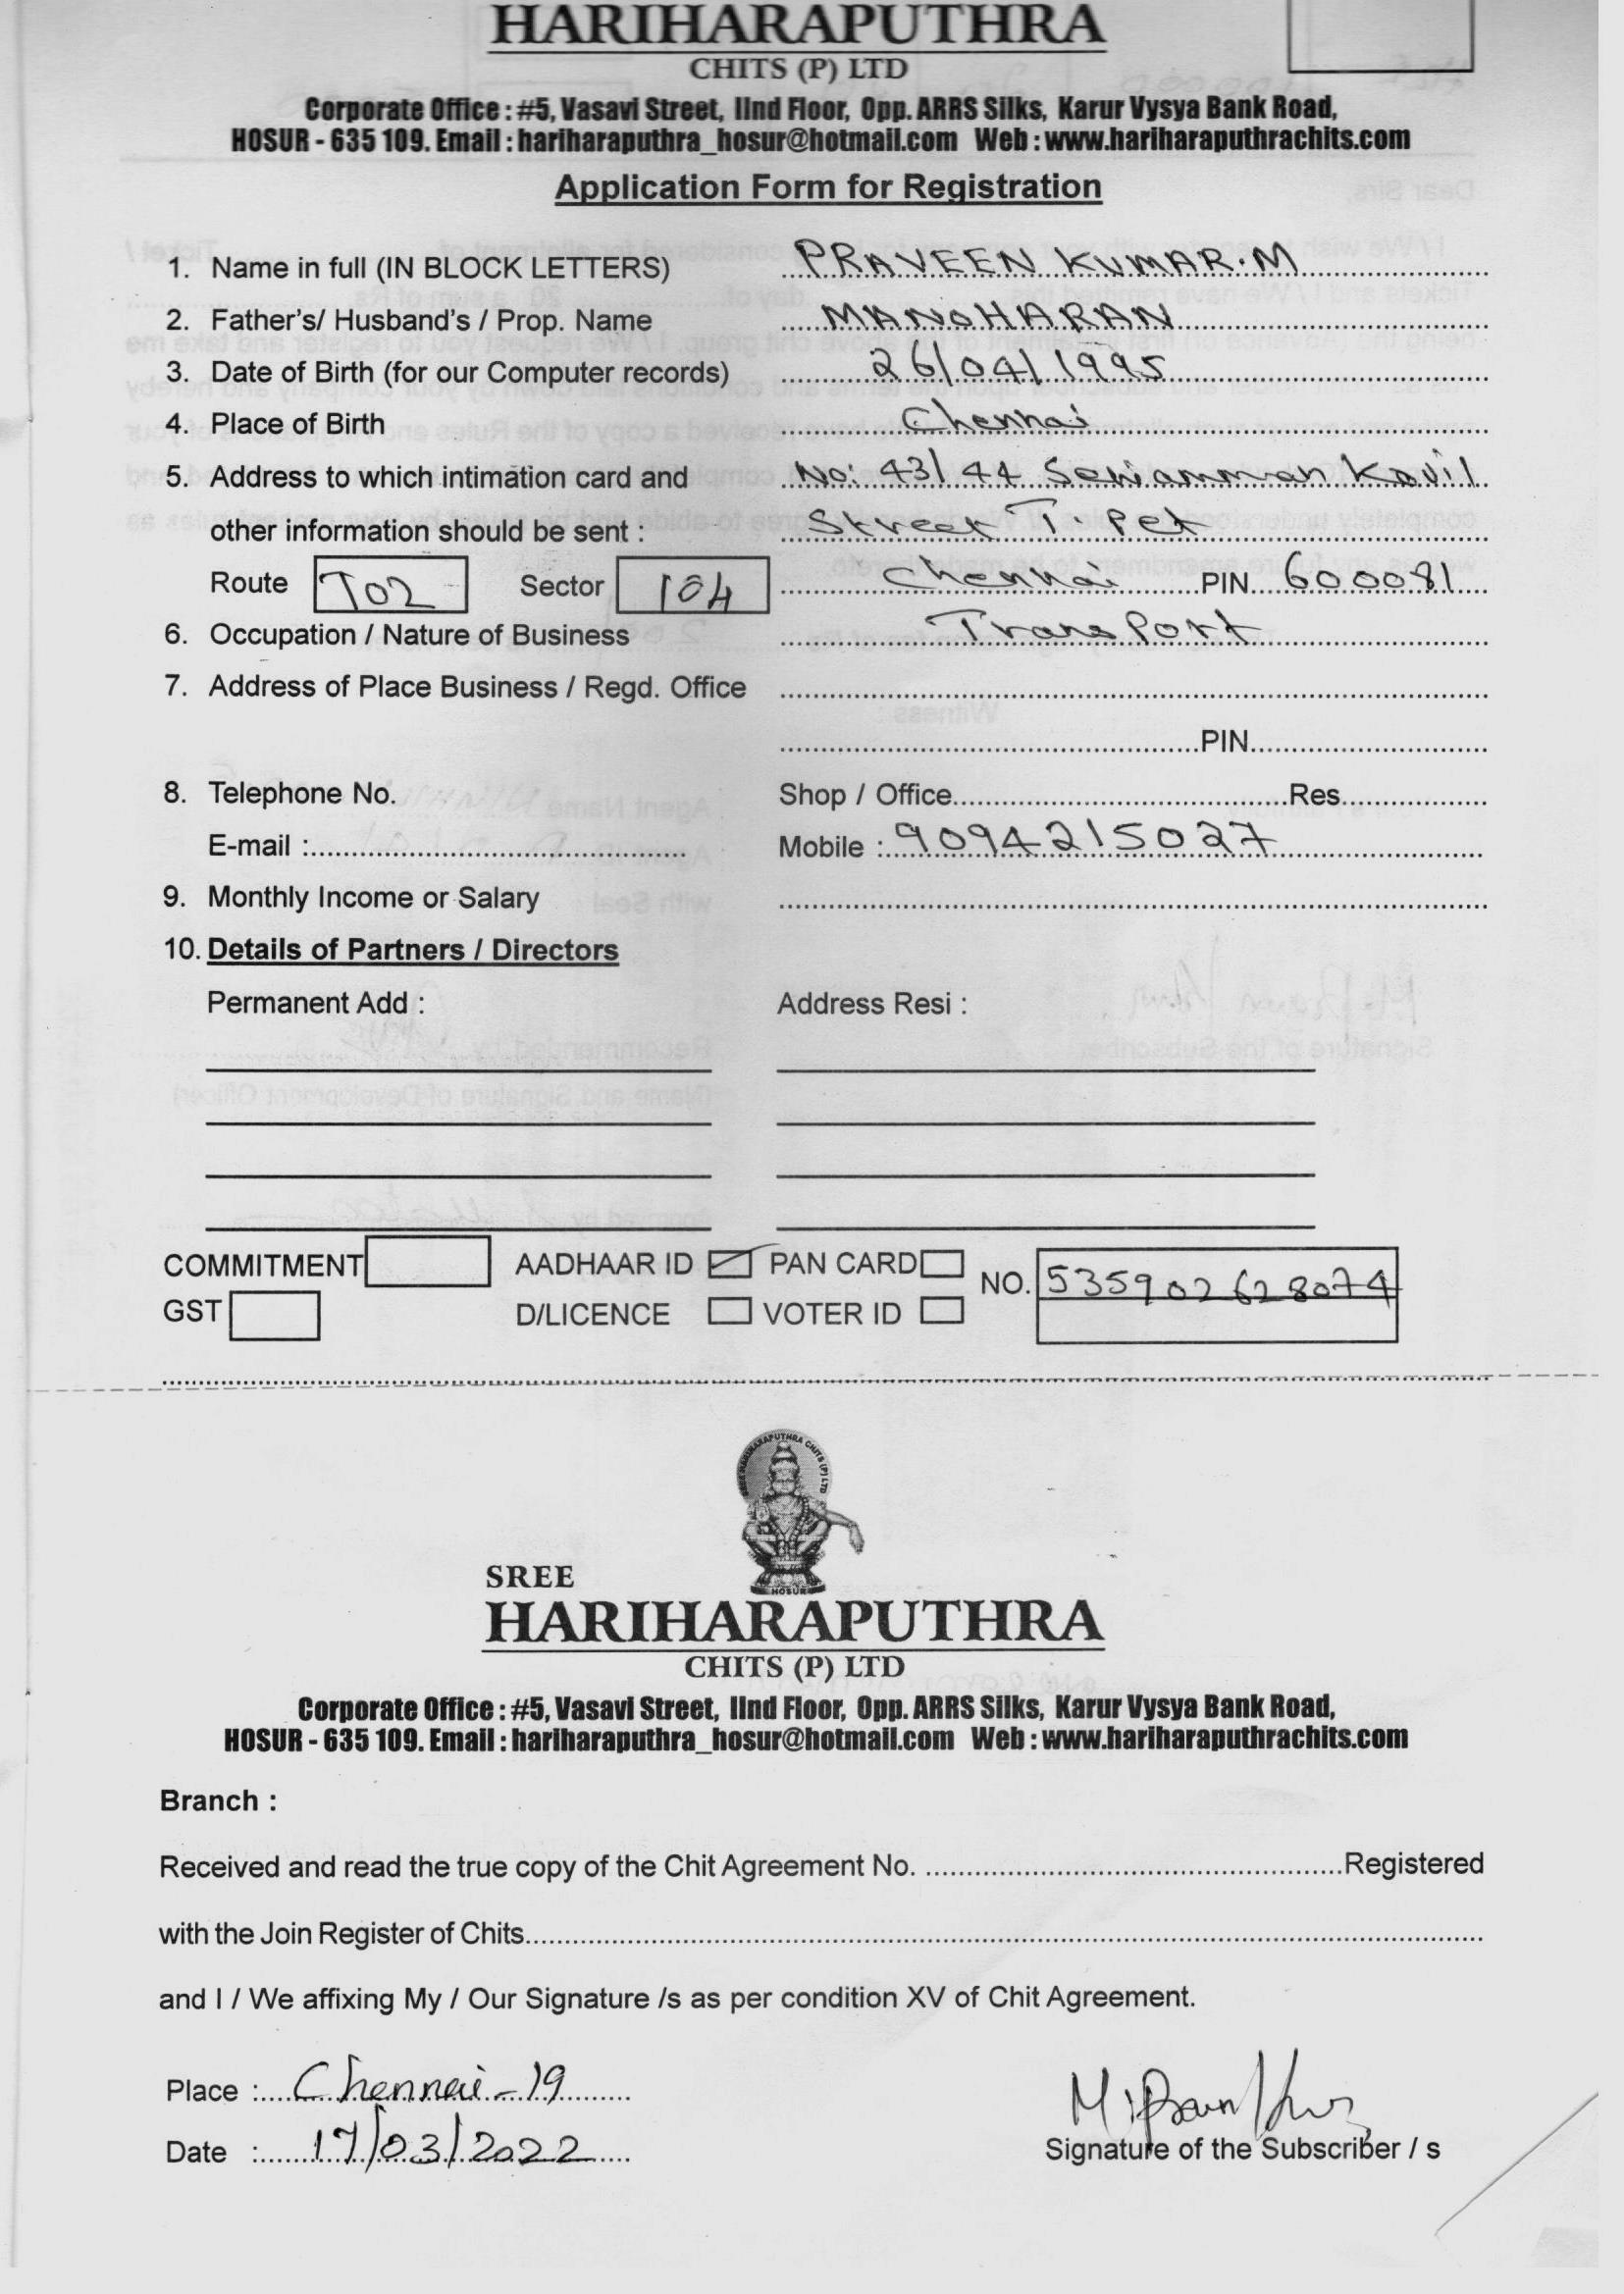 HARIHARAPUTHRA
CHITS (P) LTD
Corporate Office : #5, Vasavi Street, IInd Floor, Opp. ARRS Silks, Karur Vysya Bank Road,
HOSUR - 635 109. Email : hariharaputhra_hosur@hotmail.com Web : www.hariharaputhrachits.com
Application Form for Registration
1. Name in full (IN BLOCK LETTERS) PRAVEEN KUMAR.M
2. Father's/ Husband's / Prop. Name MANOHARAN
3. Date of Birth (for our Computer records) 26/04/1995
4. Place of Birth Chennai
5. Address to which intimation card and No: 43/44 Seniamman Kovil
other information should be sent : Street T Pet
Route T02 Sector 104 Chennai PIN 600081
6. Occupation / Nature of Business Transport
7. Address of Place Business / Regd. Office
PIN
8. Telephone No. Shop / Office Res.
E-mail : Mobile : 9094215027
9. Monthly Income or Salary
10. Details of Partners / Directors
Permanent Add : Address Resi :
COMMITMENT AADHAAR ID PAN CARD NO. 535902628074
GST D/LICENCE VOTER ID
SREE HARIHARAPUTHRA CHITS (P) LTD
HOSUR
SREE
HARIHARAPUTHRA
CHITS (P) LTD
Corporate Office : #5, Vasavi Street, IInd Floor, Opp. ARRS Silks, Karur Vysya Bank Road,
HOSUR - 635 109. Email : hariharaputhra_hosur@hotmail.com Web : www.hariharaputhrachits.com
Branch :
Received and read the true copy of the Chit Agreement No. Registered
with the Join Register of Chits
and I / We affixing My / Our Signature /s as per condition XV of Chit Agreement.
Place : Chennai-19
Date : 17/03/2022
Signature of the Subscriber / s